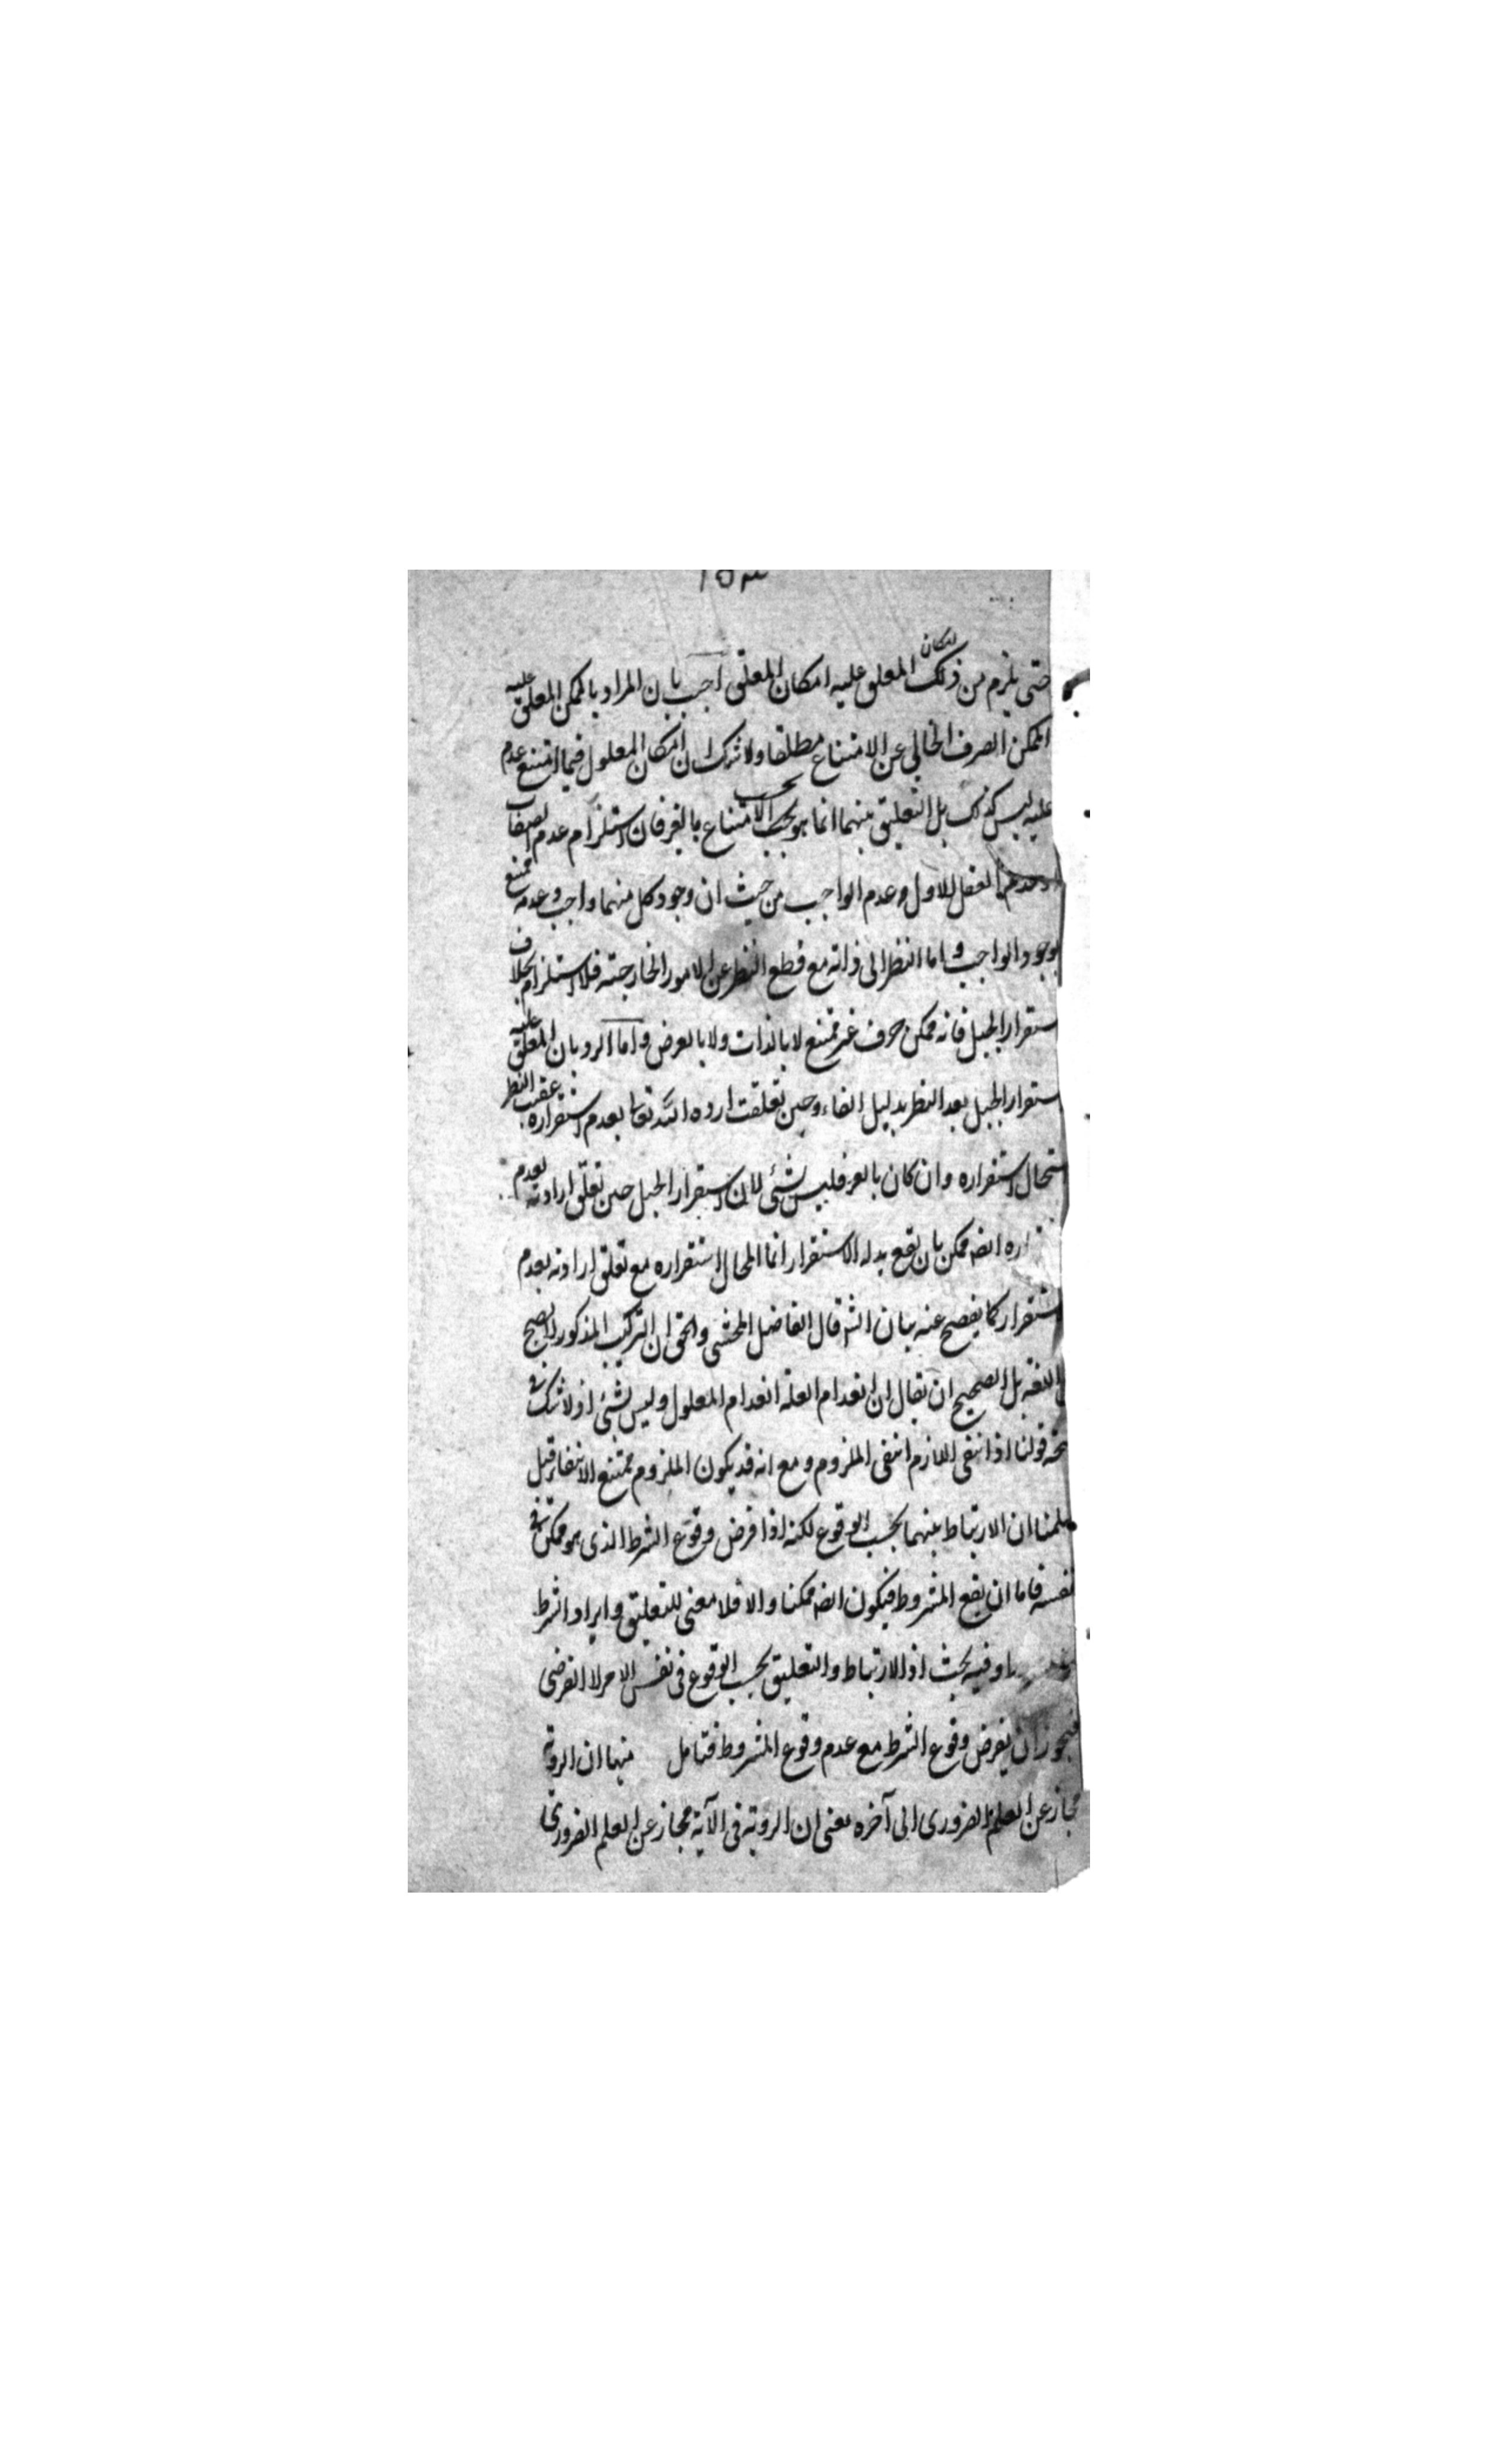 ١٥٣
حتى يلزم من ذلك امكان المعلق عليه امكان المعلق اجيب بان المراد بالممكن المعلق عليه
الممكن الصرف الخالى عن الامتناع مطلقا ولا شك ان امكان المعلول فيما امتنع عدم
عليه ليس كذلك بل التعليق بينهما انما هو بحسب الامتناع بالغير فان استلزام عدم الصفات
العقل الاول وعدم الواجب من حيث ان وجود كل منهما واجب وعدمه ممتنع
بوجود الواجب واما النظر الى ذاته مع قطع النظر عن الامور الخارجية فلا استلزام بخلاف
ستقرار الجبل فانه ممكن صرف غير ممتنع لا بالذات ولا بالعرض واما الرد بان المعلق عليه
ستقرار الجبل بعد النظر بدليل الفاء وحين تعلقت ارده الله تعا بعدم استقراره عقيب النظر
ستحال استقراره وان كان بالغير فليس بشئ لان استقرار الجبل حين تعلق ارادته بعدم
اره ايضه ممكن بان يقع بدله الاستقرار انما المحال استقراره مع تعلق ارادته بعدم
ستقرار كما يفصح عنه بيان الشه قال الفاضل المحشى والحق ان التركيب المذكور لا يصح
اللغة بل الصحيح ان يقال ان انعدام العلة انعدام المعلول وليس بشئ اذ لا شك فى
حة قولنا اذا انتفى اللازم انتفى الملزوم ومع انه قد يكون الملزوم ممتنع الانتفاء قيل
سلمنا ان الارتباط بينهما بحسب الوقوع لكنه اذا فرض وقوع الشرط الذى هو ممكن فى
نفسه فاما ان يقع المشروط فيكون ايضه ممكنا والا فلا معنى للتعليق وايراد الشرط
وفيه بحث اذ الارتباط والتعليق بحسب الوقوع فى نفس الامر لا الفرضى
فيجوز ان يفرض وقوع الشرط مع عدم وقوع المشروط فتامل منها ان الروية
مجاز عن العلم الضرورى الى آخره يعنى ان الروية فى الآية مجاز عن العلم الضرورى